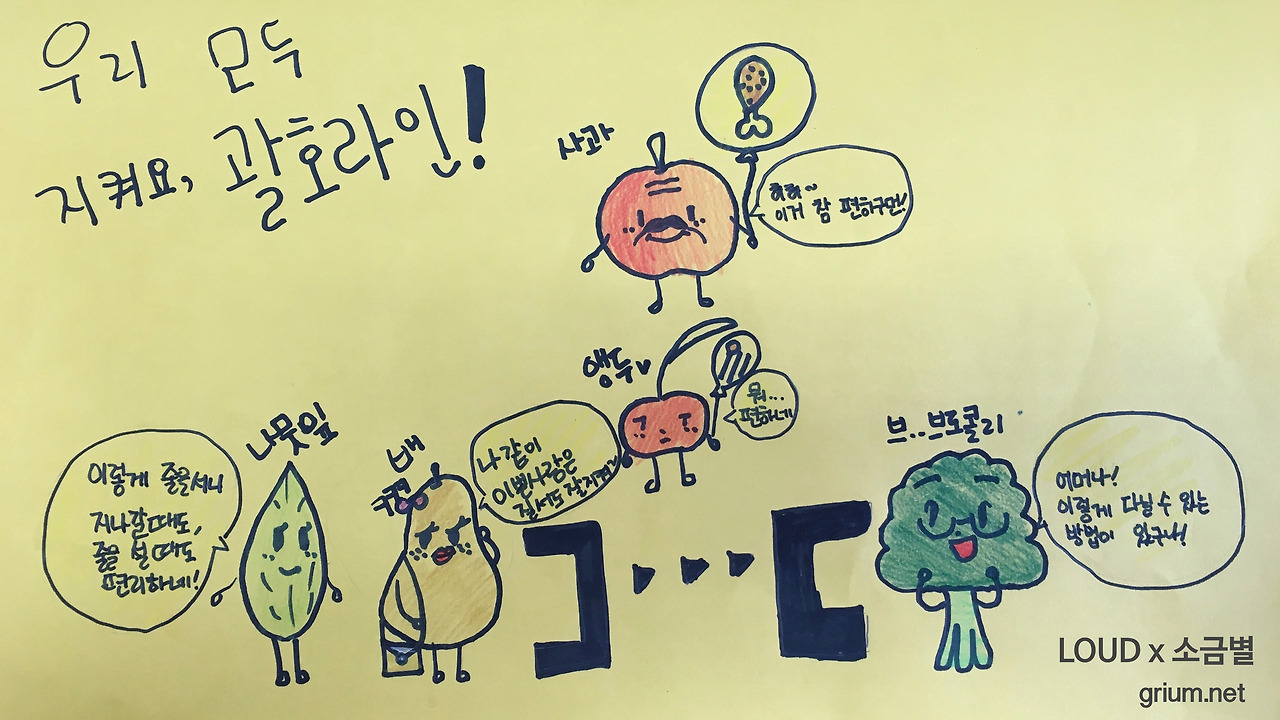 우리 모두
지켜요, 괄호라인!
사과
하하~
이거 참 편하구먼!
앵두
뭐...
편하네
나뭇잎
이렇게 줄을서니
지나갈때도,
줄을 설 때도
편리하네!
배
나같이
이쁜사람은
질서도 잘지켜
브..브로콜리
어머나!
이렇게 다닐 수 있는
방법이 있구나!
LOUD x 소금별
grium.net